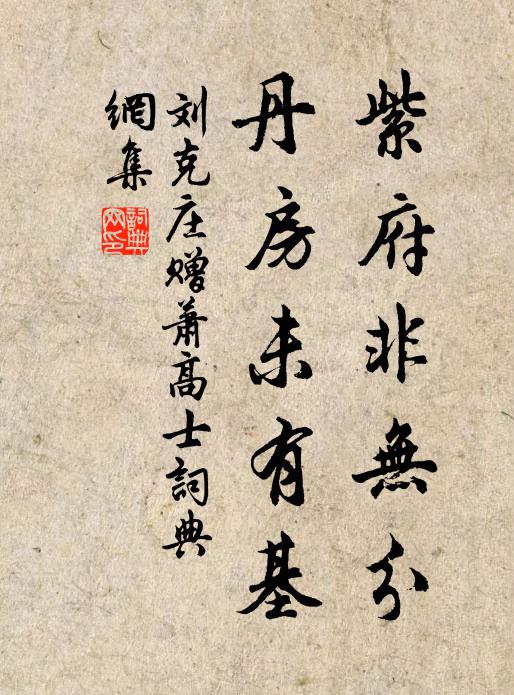 紫府非無分
丹房未有基
刘克庄赠萧高士詞典
網集
詞典網印